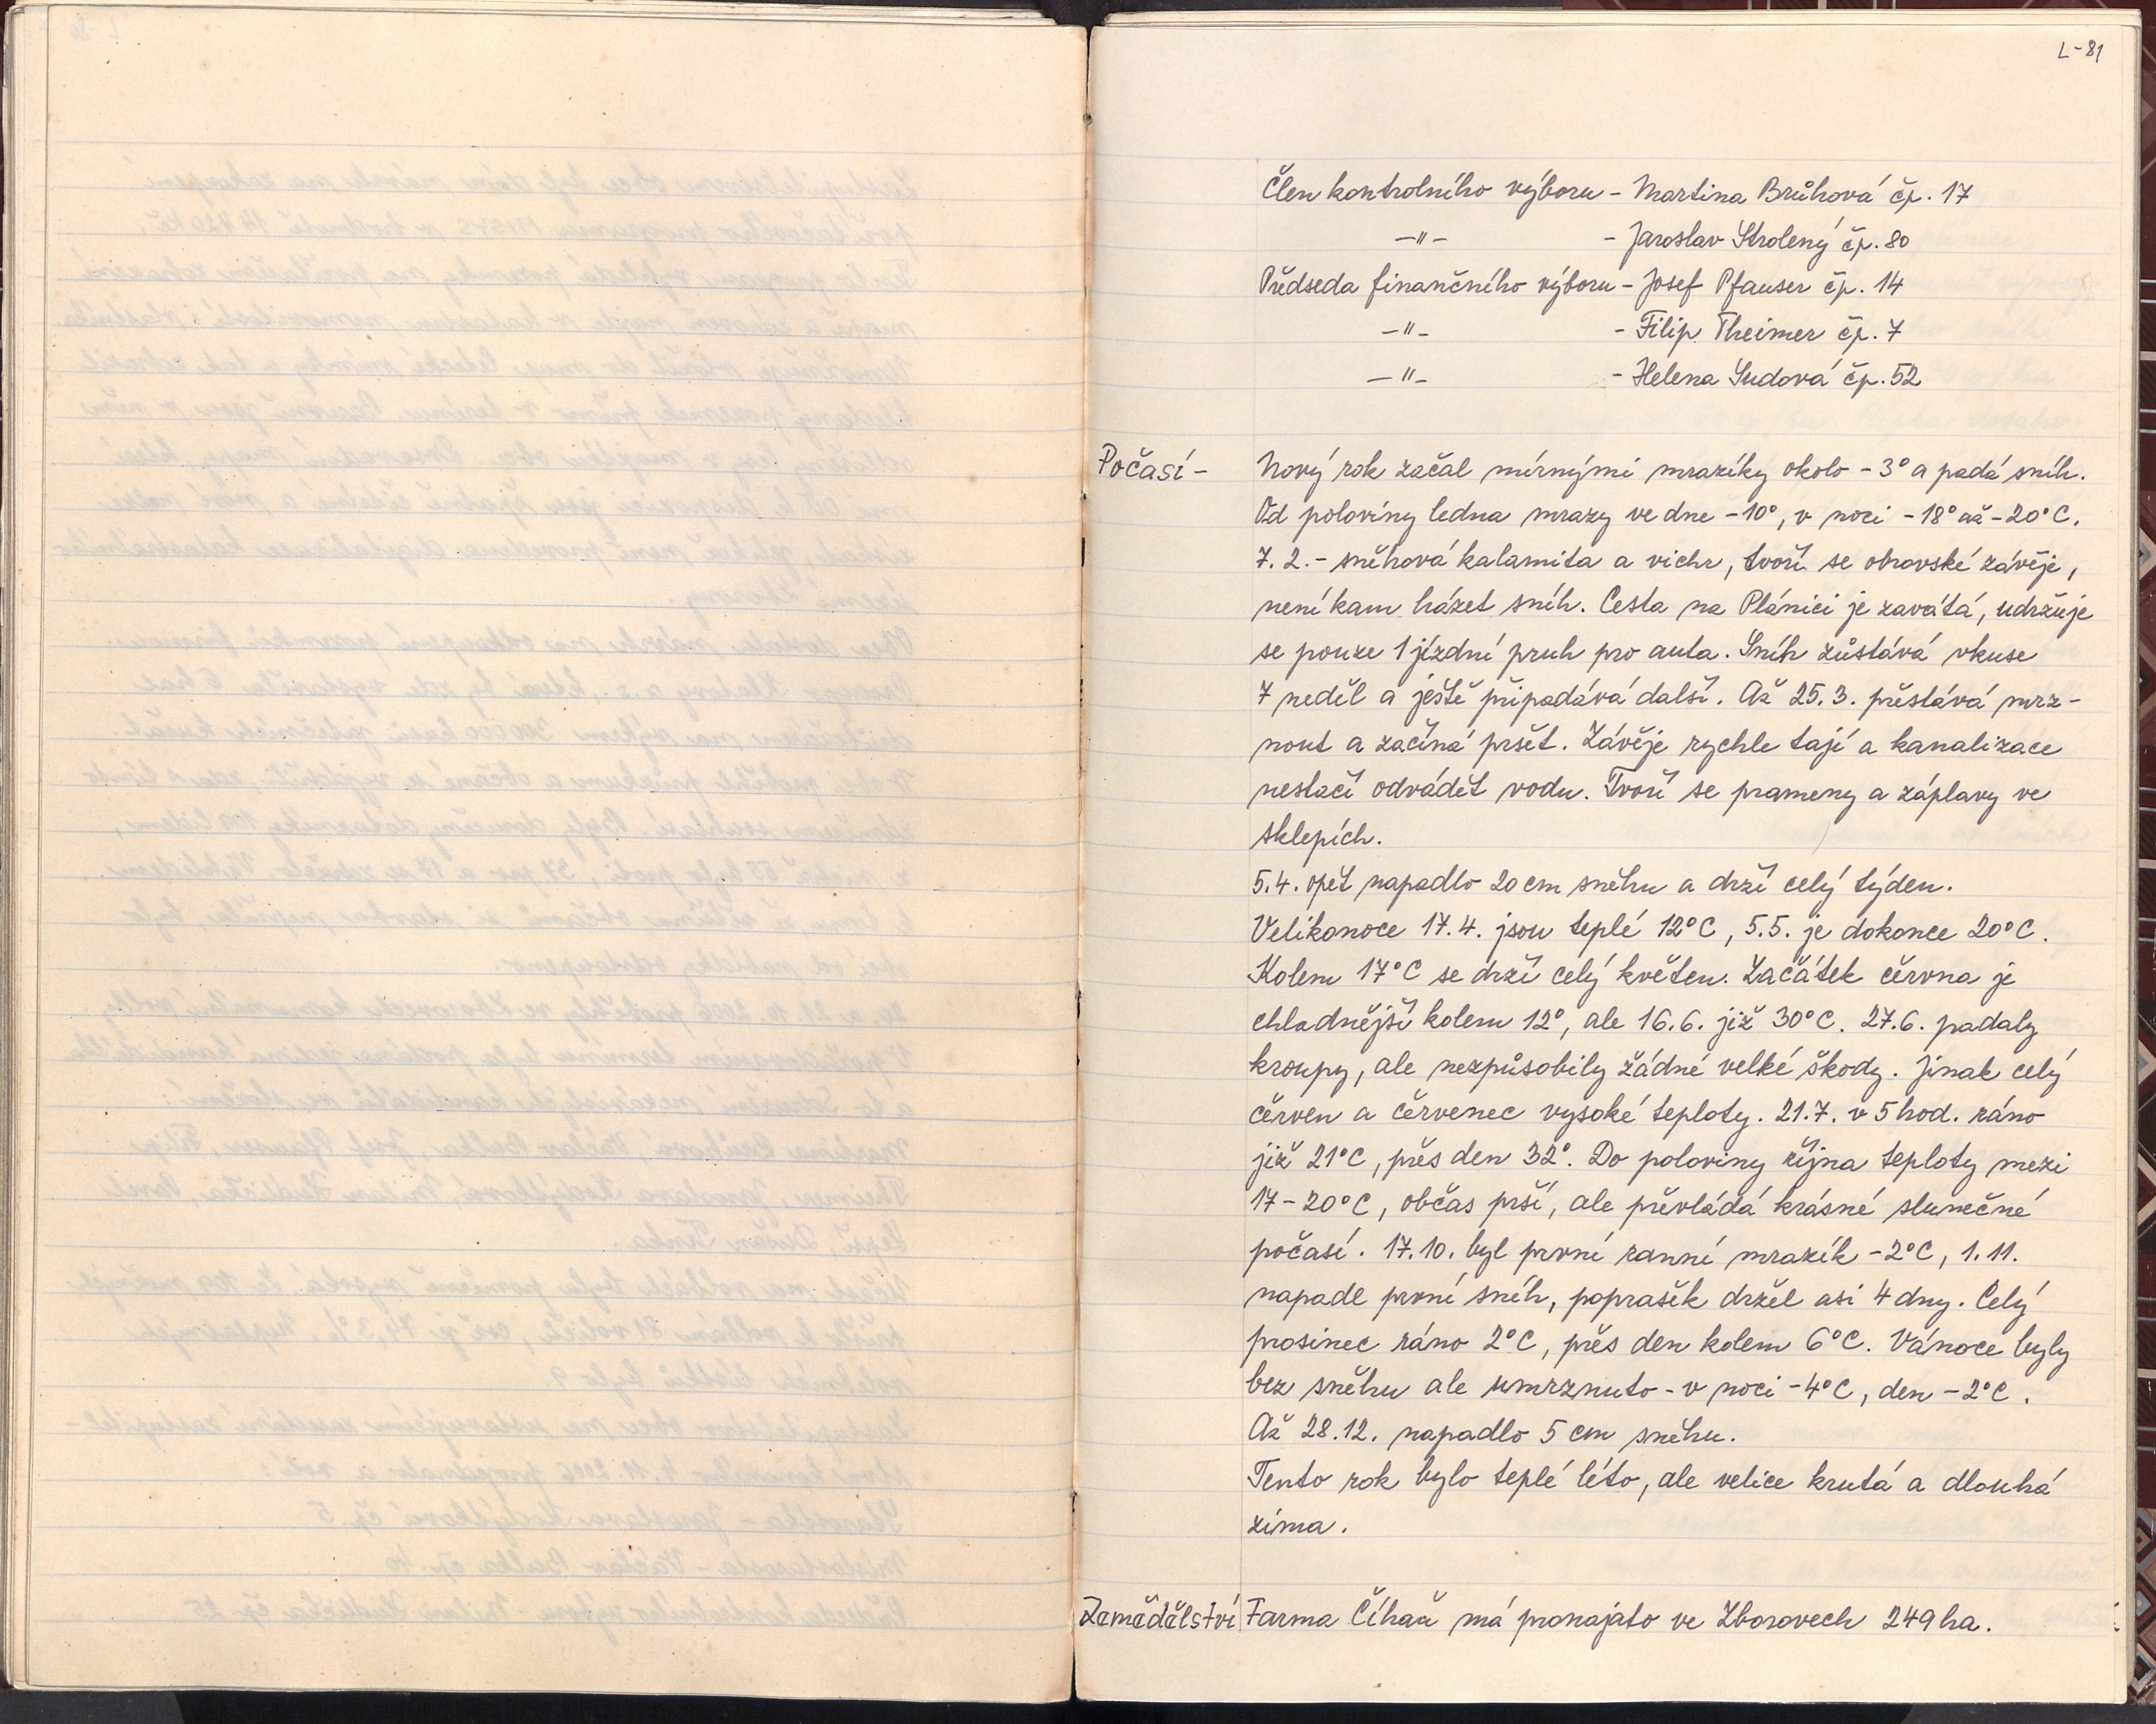 L-81
Člen kontrolního výboru - Martina Brůhová čp. 17
—"— - Jaroslav Strolený čp. 80
Předseda finančního výboru - Josef Pfauser čp. 14
—"— - Filip Theimer čp. 7
—"— - Helena Sudová čp. 52
Počasí - Nový rok začal mírnými mrazíky okolo -3° a padá sníh.
Od poloviny ledna mrazy ve dne -10°, v noci -18° až -20°C.
7. 2. - sněhová kalamita a vichr, tvoří se obrovské závěje,
není kam házet sníh. Cesta na Plánici je zavátá, udržuje
se pouze 1 jízdní pruh pro auta. Sníh zůstává vkuse
7 neděl a ještě připadává další. Až 25. 3. přestává mrz-
nout a začíná pršet. Závěje rychle tají a kanalizace
nestačí odvádět vodu. Tvoří se prameny a záplavy ve
sklepích.
5. 4. opět napadlo 20 cm sněhu a drží celý týden.
Velikonoce 17. 4. jsou teplé 12°C, 5. 5. je dokonce 20°C.
Kolem 17°C se drží celý květen. Začátek června je
chladnější kolem 12°, ale 16. 6. již 30°C. 27. 6. padaly
kroupy, ale nezpůsobily žádné velké škody. Jinak celý
červen a červenec vysoké teploty. 21. 7. v 5 hod. ráno
již 21°C, přes den 32°. Do poloviny října teploty mezi
17-20°C, občas prší, ale převládá krásné slunečné
počasí. 17. 10. byl první ranní mrazík -2°C, 1. 11.
napadl první sníh, poprašek držel asi 4 dny. Celý
prosinec ráno 2°C, přes den kolem 6°C. Vánoce byly
bez sněhu ale umrznuto - v noci -4°C, den -2°C.
Až 28. 12. napadlo 5 cm sněhu.
Tento rok bylo teplé léto, ale velice krutá a dlouhá
zima.
Zemědělství Farma Číhař má pronajato ve Zborovech 249 ha.